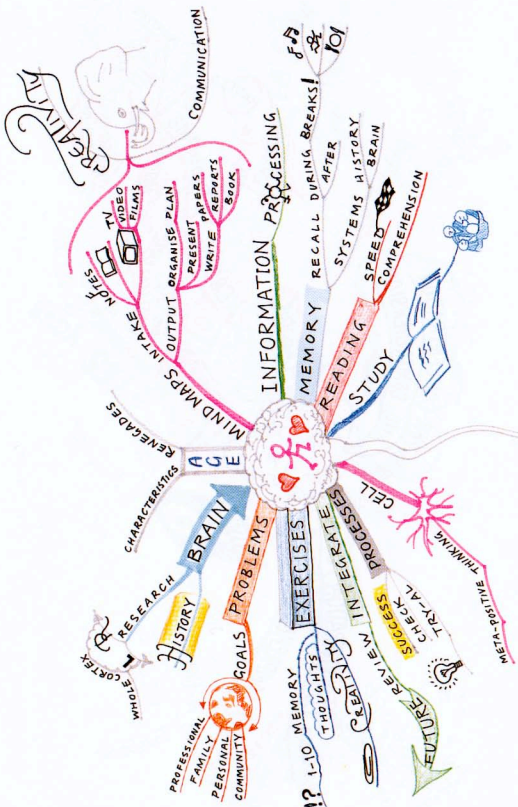 CREATIVITY
COMMUNICATION
MIND MAPS
INTAKE
NOTES
TV
VIDEO
FILMS
OUTPUT
ORGANISE PLAN
PRESENT
WRITE
PAPERS
REPORTS
BOOK
INFORMATION
PROCESSING
MEMORY
RECALL DURING BREAKS!
AFTER
SYSTEMS HISTORY
BRAIN
READING
SPEED
COMPREHENSION
STUDY
CELL
META-POSITIVE THINKING
PROCESSES
SUCCESS
CHECK
TRYAL
INTEGRATE
REVIEW
FUTURE
EXERCISES
1-10 MEMORY
!?
THOUGHTS
CREATIVITY
PROBLEMS
GOALS
PROFESSIONAL
FAMILY
PERSONAL
COMMUNITY
BRAIN
RESEARCH
L R
WHOLE CORTEX
HISTORY
AGE
CHARACTERISTICS
RENEGADES